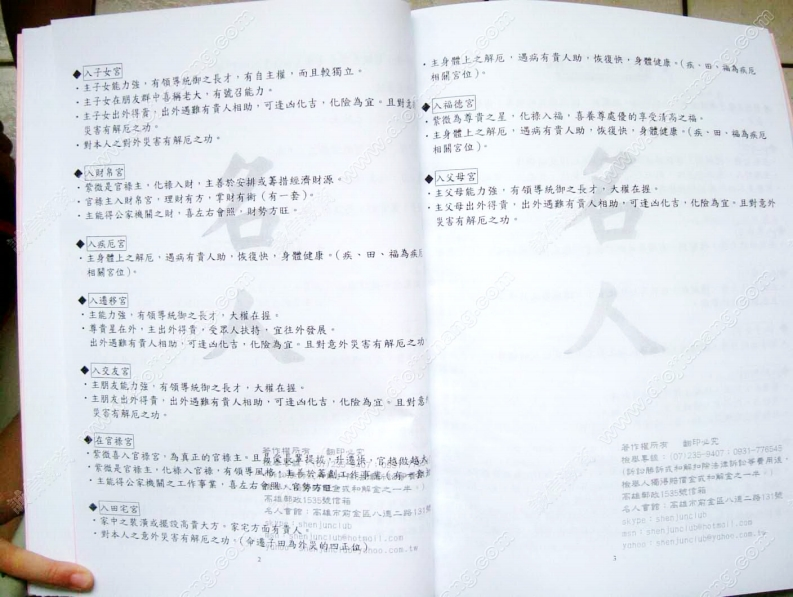 ◆入子女宮
・主子女能力強,有領導統御之長才,有自主權,而且較獨立。
・主子女在朋友群中喜稱老大,有號召能力。
・主子女出外得貴,出外遇難有貴人相助,可逢凶化吉,化險為宜。且對意
災害有解厄之功。
・對本人之對外災害有解厄之功。
◆入財帛宮
・紫微是官祿主,化祿入財,主善於安排或籌措經濟財源。
・官祿主入財帛宮,理財有方,掌財有術(有一套)。
・主能得公家機關之財,喜左右會照,財勢方旺。
◆入疾厄宮
・主身體上之解厄,遇病有貴人助,恢復快,身體健康。(疾、田、福為疾厄
相關宮位)。
◆入遷移宮
・主能力強,有領導統御之長才,大權在握。
・尊貴星在外,主出外得貴,受眾人扶持,宜往外發展。
出外遇難有貴人相助,可逢凶化吉,化險為宜。且對意外災害有解厄之功
◆入交友宮
・主朋友能力強,有領導統御之長才,大權在握。
・主朋友出外得貴,出外遇難有貴人相助,可逢凶化吉,化險為宜。且對意
災害有解厄之功。
◆在官祿宮
・紫微喜入官祿宮,為真正的官祿主。且易蒙長輩提拔,升遷快,官越做越大
・紫微是官祿主,化祿入官祿,有領導風格,主長於籌劃工作事處(有一套
・主能得公家機關之工作事業,喜左右會照,官勢方旺。
◆入田宅宮
・家中之裝潢或擺設高貴大方,家宅方面有貴人。
・對本人之意外災害有解厄之功。(命遷子田為外災的四正位)
高雄郵政1535號信箱
名人會館:高雄市前金區八德二路131號
skype:shenjunclub
msn:shenjunclub@hotmail.com
yahoo:shenjunclub@yahoo.com.tw
2
・主身體上之解厄,遇病有貴人助,恢復快,身體健康。(疾、田、福為疾厄
相關宮位)。
◆入福德宮
・紫微為尊貴之星,化祿入福,喜養尊處優的享受清高之福。
・主身體上之解厄,遇病有貴人助,恢復快,身體健康。(疾、田、福為疾厄
相關宮位)。
◆入父母宮
・主父母能力強,有領導統御之長才,大權在握。
・主父母出外得貴,出外遇難有貴人相助,可逢凶化吉,化險為宜。且對意外
災害有解厄之功。
名
人
著作權所有 翻印必究
檢舉專線:(07)235-8407;0931-776543
(訴訟勝訴或和解扣除法律訴訟等費用後,
檢舉人獨得賠償金或和解金之一半。)
高雄郵政1535號信箱
名人會館:高雄市前金區八德二路131號
skype:shenjunclub
msn:shenjunclub@hotmail.com
yahoo:shenjunclub@yahoo.com.tw
3